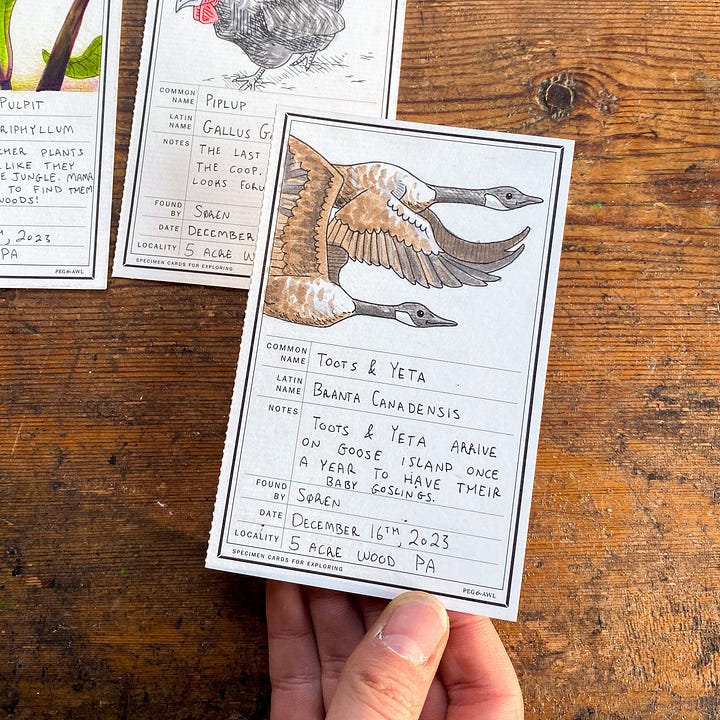 PULPIT
RIPHYLLUM
CHER PLANTS
LIKE THEY
E JUNGLE. MAMA
TO FIND THEM
WOODS!
TH, 2023
PA
PEG & AWL
COMMON NAME PIPLUP
LATIN NAME GALLUS G
NOTES THE LAST
THE COOP.
LOOKS FOR
FOUND BY SØREN
DATE DECEMBER
LOCALITY 5 ACRE W
SPECIMEN CARDS FOR EXPLORING
COMMON NAME TOOTS & YETA
LATIN NAME BRANTA CANADENSIS
NOTES TOOTS & YETA ARRIVE
ON GOOSE ISLAND ONCE
A YEAR TO HAVE THEIR
BABY GOSLINGS.
FOUND BY SØREN
DATE DECEMBER 16TH, 2023
LOCALITY 5 ACRE WOOD PA
SPECIMEN CARDS FOR EXPLORING
PEG & AWL